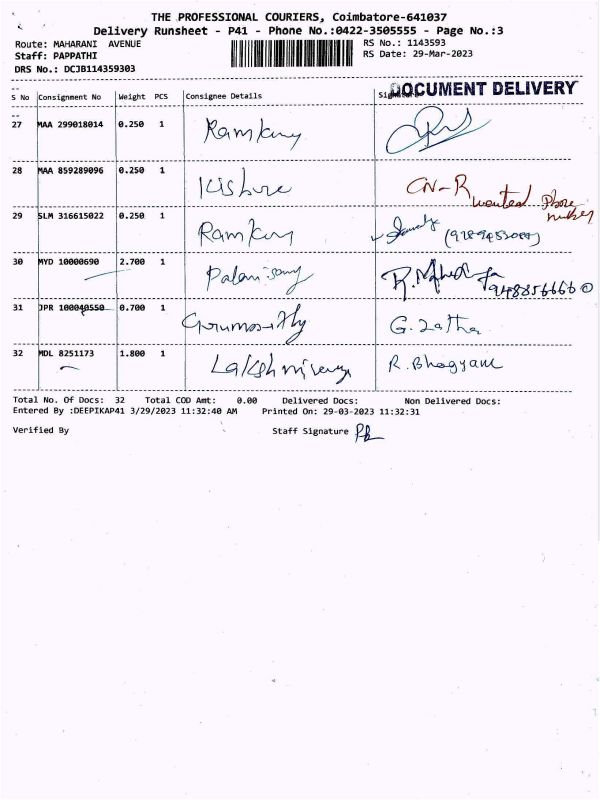 THE PROFESSIONAL COURIERS, Coimbatore-641037
Delivery Runsheet - P41 - Phone No.:0422-3505555 - Page No.:3
Route: MAHARANI AVENUE
RS No.: 1143593
Staff: PAPPATHI
RS Date: 29-Mar-2023
DRS No.: DCJB114359303
DOCUMENT DELIVERY
S No Consignment No Weight PCS Consignee Details Signature
27 MAA 299018014 0.250 1
28 MAA 859289096 0.250 1 Kishore CN-R wanted Phone number
29 SLM 316615022 0.250 1
30 MYD 10000690 2.700 1
31 JPR 100040550 0.700 1 G. Latha
32 MDL 8251173 1.800 1 R. Bhagyam
Total No. Of Docs: 32 Total COD Amt: 0.00 Delivered Docs: Non Delivered Docs:
Entered By :DEEPIKAP41 3/29/2023 11:32:40 AM Printed On: 29-03-2023 11:32:31
Verified By Staff Signature